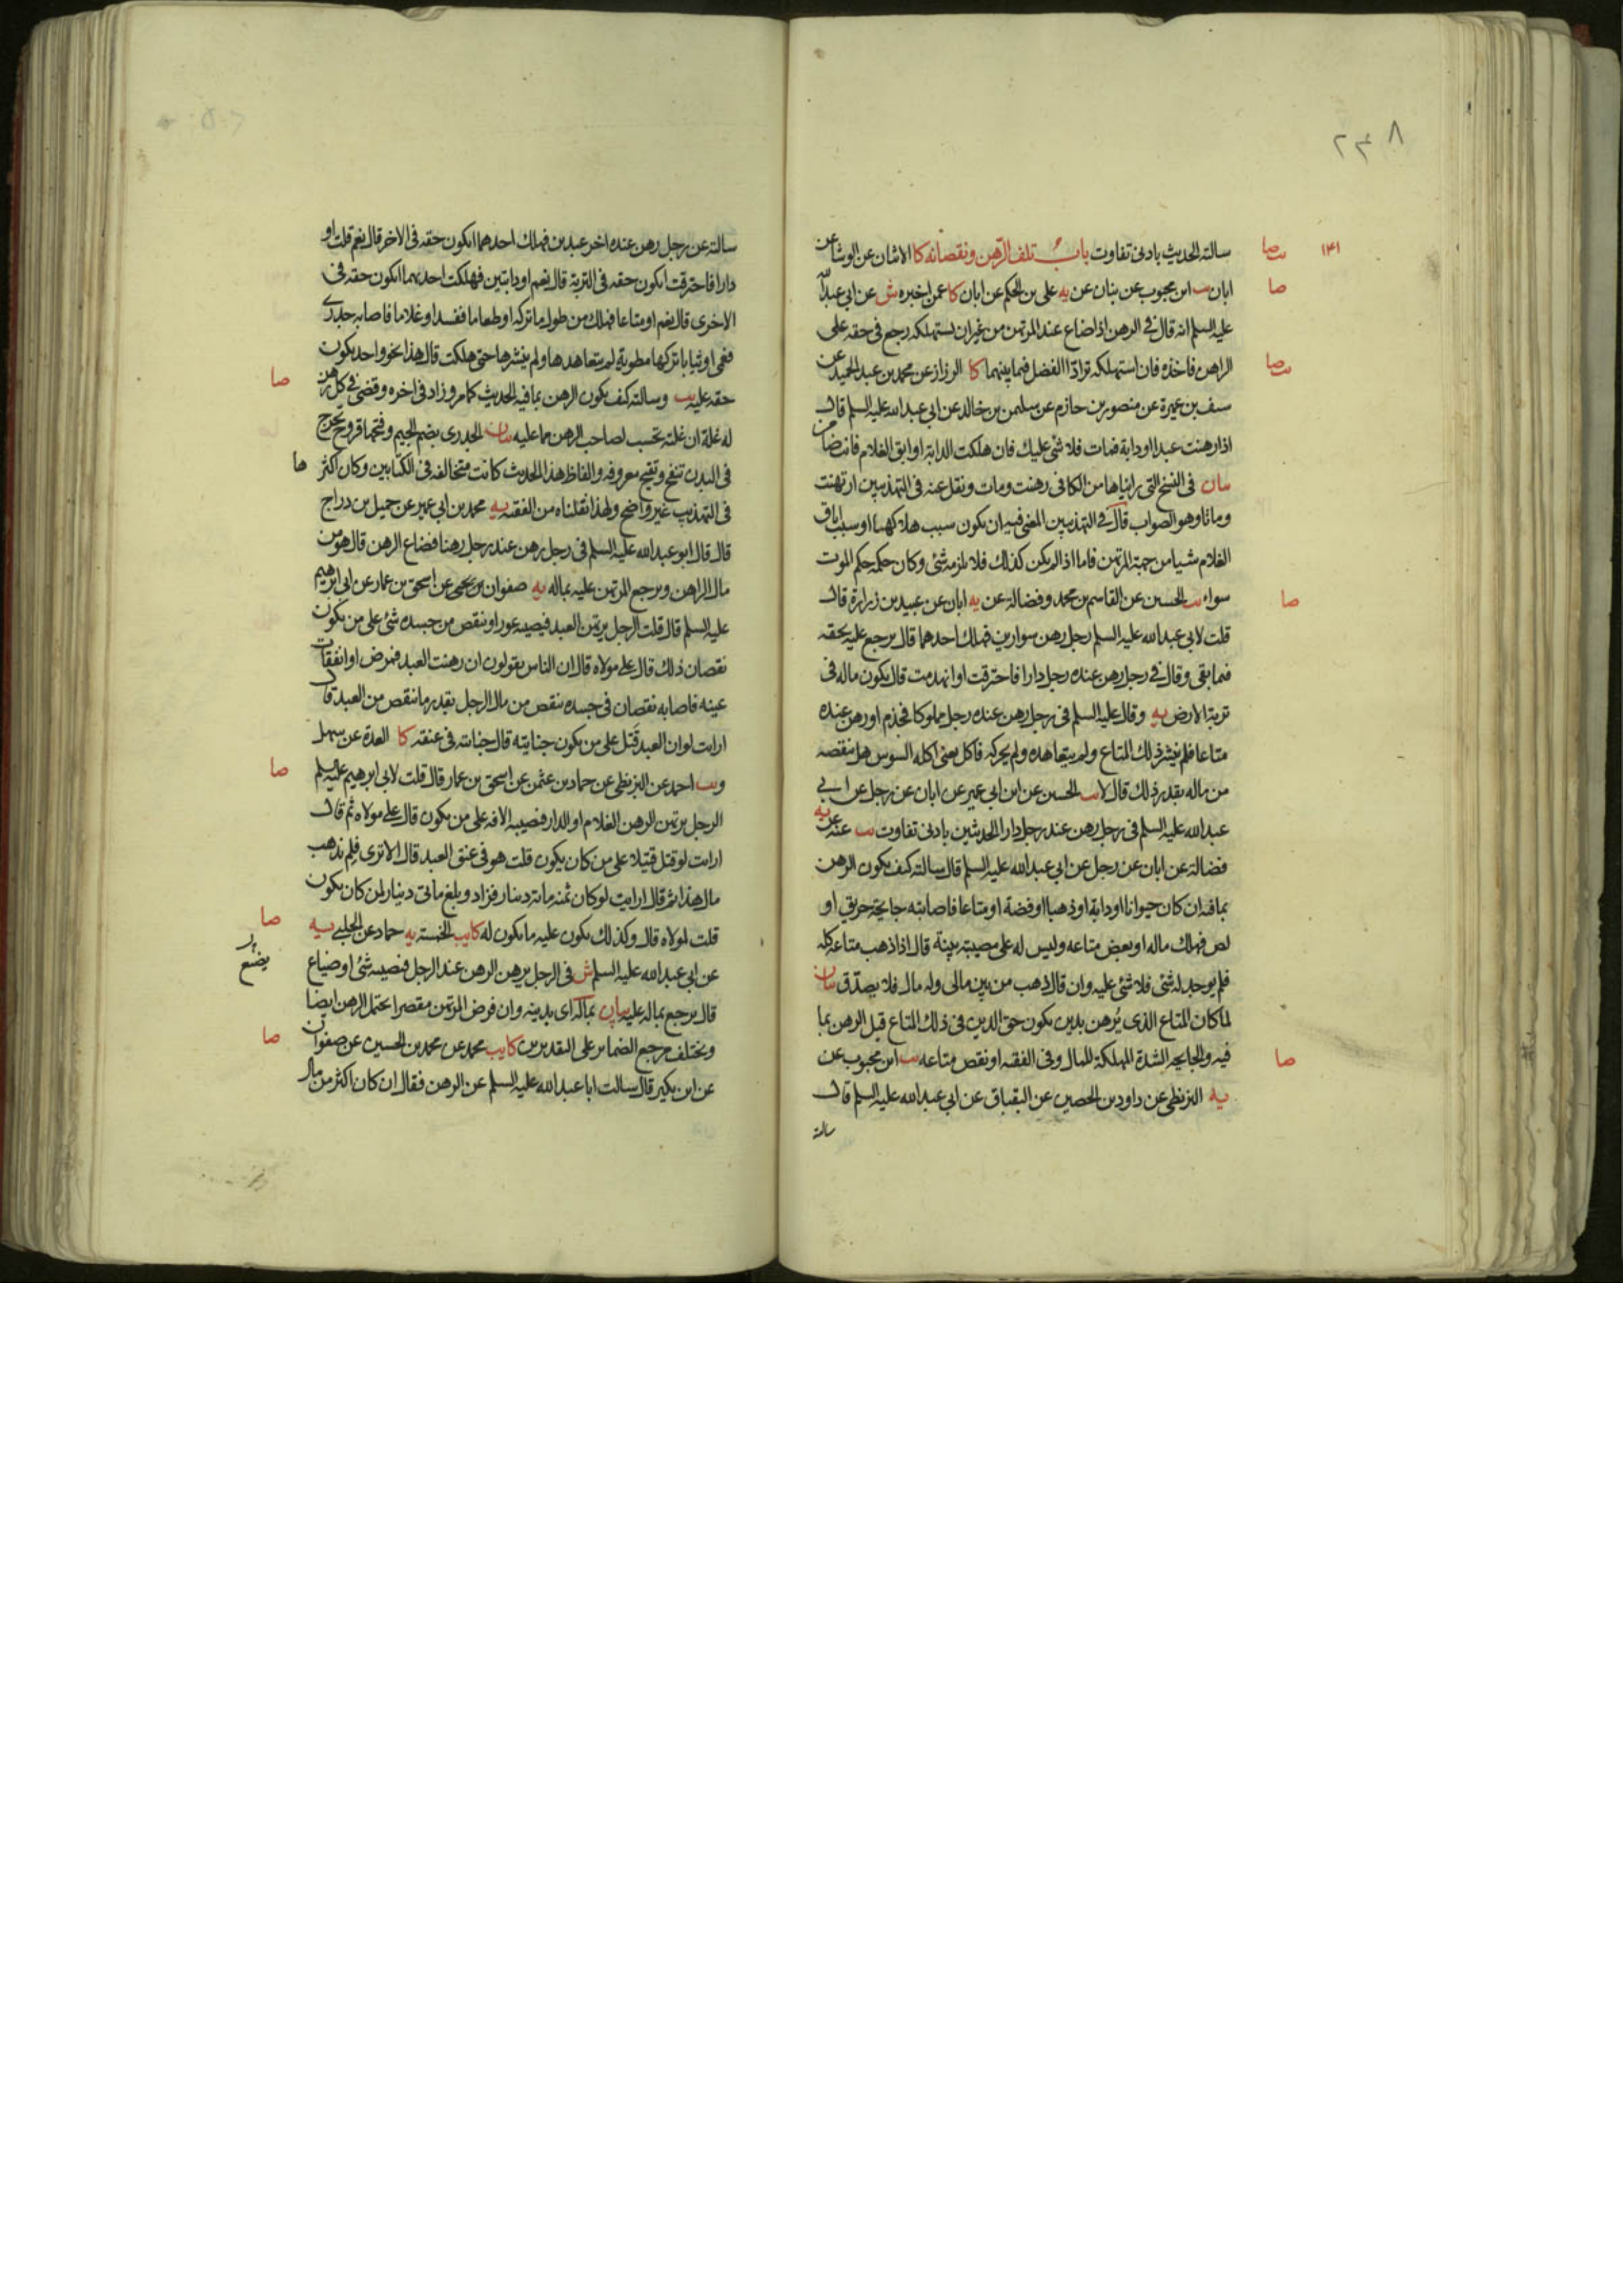 ٢٣٨
١٤١
سالته الحديث بادنى تفاوت باب تلف الرهن ونقصانه كا الاثنان عن الوشا عن
ابان يب ابن محبوب عن بنان عن يه على بن الحكم عن ابان كا عمن اخبره ش عن ابي عبد الله
عليه السلم انه قال في الرهن اذا ضاع عند المرتهن من غير ان يستهلكه رجع في حقه على
الراهن فاخذه فان استهلكه ترادّا الفضل فيما بينهما كا الرزاز عن محمد بن عبد الحميد عن
سيف بن عميرة عن منصور بن حازم عن سليمن بن خالد عن ابي عبد الله عليه السلم قال
اذا رهنت عبدا او دابة فمات فلا شئ عليك فان هلكت الدابة او ابق الغلام فانت ضامن
بيان في النسخ التي رايناها من الكافي رهنت ومات ونقل عنه في التهذيبين ارتهنت
وماتا وهو الصواب قال في التهذيبين المعنى فيه ان يكون سبب هلاكهما او سبب اباق
الغلام شيا من جهة المرتهن فاما اذا لم يكن كذلك فلا يلزمه شئ وكان حكمه حكم الموت
سواء يب الحسين عن القاسم بن محمد وفضالة عن يه ابان عن عبيد بن زرارة قال
قلت لابي عبد الله عليه السلم رجل رهن سوارين فهلك احدهما قال يرجع عليه بحقه
فيما بقى وقال في رجل رهن عنده رجل دارا فاحترقت او انهدمت قال يكون ماله في
تربة الارض يه وقال عليه السلم في رجل رهن عنده رجل مملوكا فجذم او رهن عنده
متاعا فلم ينشر ذلك المتاع ولم يتعاهده ولم يحركه فاكل يعنى اكله السوس هل ينقصه
من ماله بقدر ذلك قال لا يب الحسين عن ابن ابي عمير عن ابان عن رجل عن ابي
عبد الله عليه السلم في رجل رهن عند رجل دارا الحديثين بادنى تفاوت يب عنه عن يه
فضالة عن ابان عن رجل عن ابي عبد الله عليه السلم قال سالته كيف يكون الرهن
بما فيه ان كان حيوانا او دابة او ذهبا او فضة او متاعا فاصابته جايحة حريق او
لص فهلك ماله او بعض متاعه وليس له على مصيبته بينة قال اذا ذهب متاعه كله
فلم يوجد له شئ فلا شئ عليه وان قال ذهب من بين مالى وله مال فلا يصدّق بيان
لما كان المتاع الذى يُرهن بدين يكون حق الدين في ذلك المتاع قيل الرهن بما
فيه والجايحه الشدة المهلكة للمال وفي الفقيه او نقص متاعه يب ابن محبوب عن
يه البزنطى عن داود بن الحصين عن البقباق عن ابي عبد الله عليه السلم قال
سالته
سالته عن رجل رهن عنده اخر عبدين فهلك احدهما ايكون حقه في الاخر قال نعم قلت او
دارا فاحترقت ايكون حقه في التربة قال نعم او دابتين فهلكت احديهما ايكون حقه في
الاخرى قال نعم او متاعا فهلك من طول ما تركه او طعاما ففسد او غلاما فاصابه جدرى
فعمى او ثيابا تركها مطوية لم يتعاهدها ولم ينشرها حتى هلكت قال هذا نحو واحد يكون
حقه عليه يب وسالته كيف يكون الرهن بما فيه الحديث كما مر وزاد في اخره وقضى في كل رهن
له غلة ان غلته تحسب لصاحب الرهن مما عليه بيان الجدرى بضم الجيم وفتحها قروح تخرج
في البدن تنفخ وتقيح معروفه والفاظ هذا الحديث كانت متخالفه في الكتابين وكان اكثرها
في التهذيب غير واضح ولهذا نقلناه من الفقيه يه محمد بن ابي عمير عن جميل بن دراج
قال قال ابو عبد الله عليه السلم في رجل رهن عند رجل رهنا فضاع الرهن قال هو من
مال الراهن ويرجع المرتهن عليه بماله يه صفوان بن يحيى عن اسحق بن عمار عن ابي ابرهيم
عليه السلم قال قلت الرجل يرتهن العبد فيصيبه عور او ينقص من جسده شئ على من يكون
نقصان ذلك قال على مولاه قال ان الناس يقولون ان رهنت العبد فمرض او انفقات
عينه فاصابه نقصان في جسده ينقص من مال الرجل بقدر ما ينقص من العبد قال
ارايت لو ان العبد قَتل على من يكون جنايته قال جنايته في عنقه كا العدة عن سهل
ويب احمد عن البزنطى عن حماد بن عثمن عن اسحق بن عمار قال قلت لابي ابرهيم عليه السلم
الرجل يرتهن الرهن الغلام او الدار فتصيبه الافه على من يكون قال على مولاه ثم قال
ارايت لو قتل قتيلا على من كان يكون قلت هو في عنق العبد قال الا ترى فلم يذهب
مال هذا ثم قال ارايت لو كان ثمنه مائة دينار فزاد وبلغ مائتى دينار لمن كان يكون
قلت لمولاه قال وكذلك يكون عليه ما يكون له كا يب الخمسة يه حماد عن الحلبي يه
عن ابي عبد الله عليه السلم ش في الرجل يرهن الرهن عند الرجل فيصيبه شئ او ضياع
قال يرجع بماله عليه بيان بماله اى بدينه وان فرض المرتهن مقصرا يحتمل الرهن ايضا
ويختلف مرجع الضماير على التقديرين كا يب محمد عن محمد بن الحسين عن صفوان
عن ابن بكير قال سالت ابا عبد الله عليه السلم عن الرهن فقال ان كان اكثر من مال